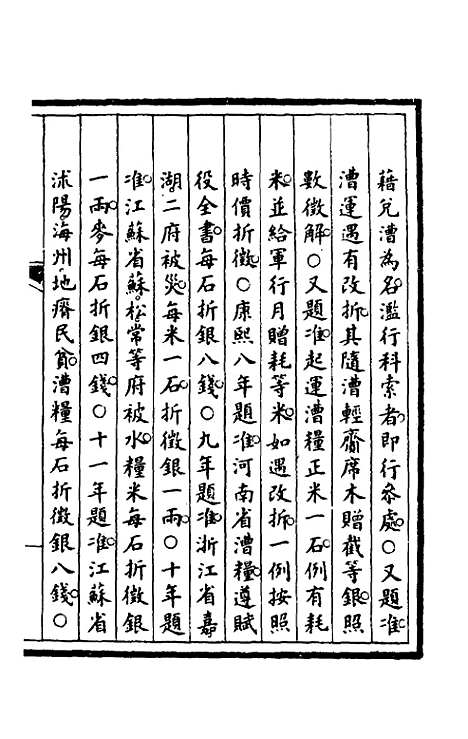 藉兌漕為名濫行科索者即行叅處○又題准
漕運遇有改折其隨漕輕齎席木贈截等銀照
數徵解○又題准起運漕糧正米一石例有耗
米並給軍行月贈耗等米如遇改折一例按照
時價折徵○康熙八年題准河南省漕糧遵賦
役全書每石折銀八錢○九年題准浙江省嘉
湖二府被災每米一石折徵銀一兩○十年題
准江蘇省蘇松常等府被水糧米每石折徵銀
一兩麥每石折銀四錢○十一年題准江蘇省
沭陽海州地瘠民貧漕糧每石折徵銀八錢○